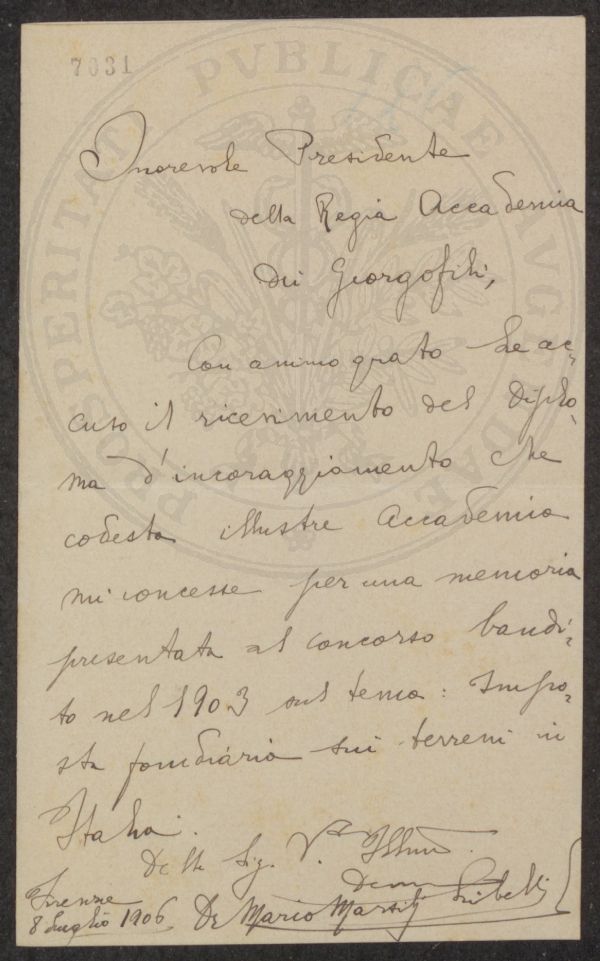 7031
PROSPERITATI PVBLICAE AVGENDAE
Onorevole Presidente
della Regia Accademia
dei Georgofili,
Con animo grato Le ac-
cuso il ricevimento del diplo-
ma d'incoraggiamento che
codesta illustre Accademia
mi concesse per una memoria
presentata al concorso bandi-
to nel 1903 sul tema: Impo-
sta fondiaria sui terreni in
Italia.
Della Sig. V. Illma
Dr Mario Marsili Libelli
Firenze
8 Luglio 1906